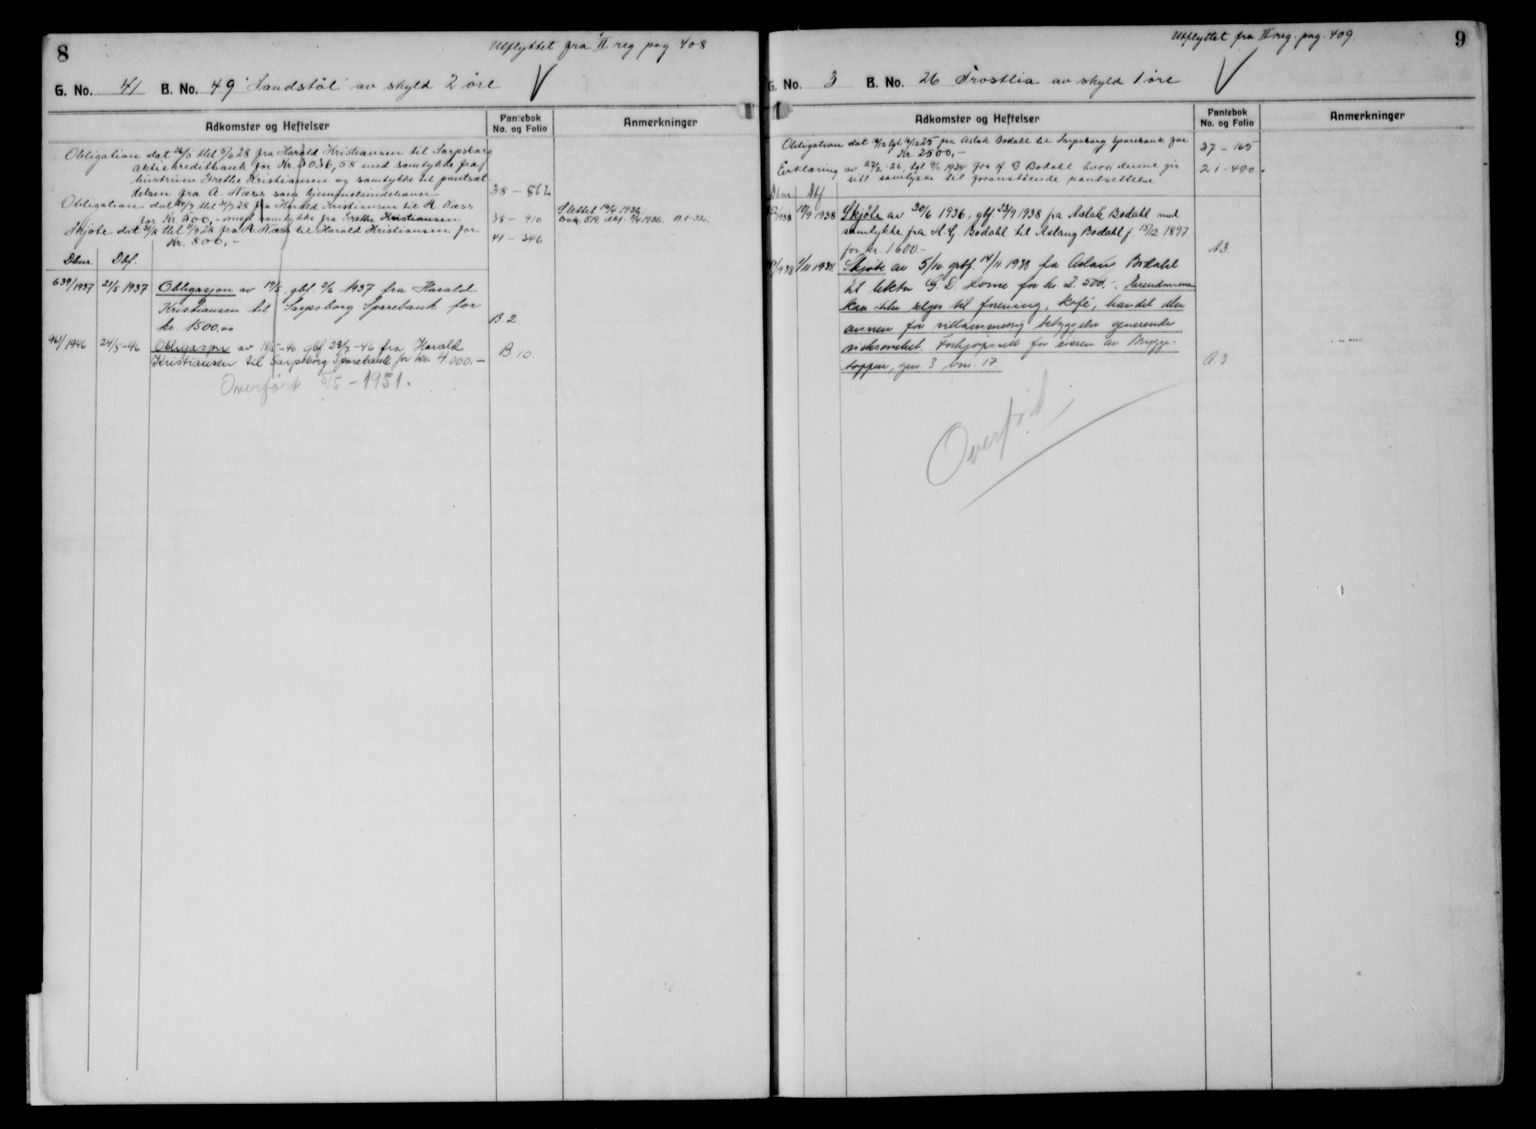 8
Utflyttet fra II reg pag 408
G. No. 41 B. No. 49 Sandstøl av skyld 2 öre
Adkomster og Heftelser
Pantebok
No. og Folio
Anmerkninger
Obligation dat 26/5 thl 5/6 28 fra Harald Kristiansen til Sarpsborg
Aktiekreditbank for Kr. 3036,58 med samtykke fra
hustruen Grethe Kristiansen og samtykke til pantsæt-
telsen fra A. Næss som hjemmelsindehaver
38 - 562
Obligation dat thl fra Harald Kristiansen til A. Næss
for Kr. 900,- med samtykke fra Grethe Kristiansen
38 - 910
Slettet 1936
Skjøte dat thl fra A. Næss til Harald Kristiansen for
Kr. 800,-
41 - 346
Dbnr. Dbf.
639/1937 21/5 1937 Obligasjon av 19/5, gbf. 2/6 1937 fra Harald
Kristiansen til Sarpsborg Sparebank for
kr. 1500,00
B 2.
961/1946 24/5-46 Obligasjon av 18/5-46 gbf 23/7-46 fra Harald
Kristiansen til Sarpsborg Sparebank for kr. 4 000.-
B. 10.
Overført 5/5 - 1951.
Utflyttet fra II reg. pag. 409.
9
G. No. 3 B. No. 26 Trostlia av skyld 1 öre
Adkomster og Heftelser
Pantebok
No. og Folio
Anmerkninger
Obligation dat fra Aslak Bodahl til Sarpsborg Sparebank for
Kr. 2500,-
37 - 165
Erklæring av 27/2-26, tgl. 1934 fra A G Bodahl hvori denne gir
sitt samtykke til foranstående pantsettelse
21 - 480
Dbnr Dbf
1938 10/9 1938 Skjøte av 30/6 1936, gbf 23/9 1938 fra Aslak Bodahl med
samtykke fra A. G. Bodahl til Aslaug Bodahl f. 13/12 1897
for kr. 1600.-
A3.
1938 11 1938 Skjøte av 5/10 gbf. 14/11 1938 fra Aslaug Bodahl
til lektor G. D. Horne for kr 2.500,-. Eiendommen
kan ikke selges til forening, kafé, handel eller
annen for villamessig bebyggelse generende
virksomhet. Forkjøpsrett for eieren av Brygge-
toppen, gnr. 3 bnr. 17.
A 3.
Overført